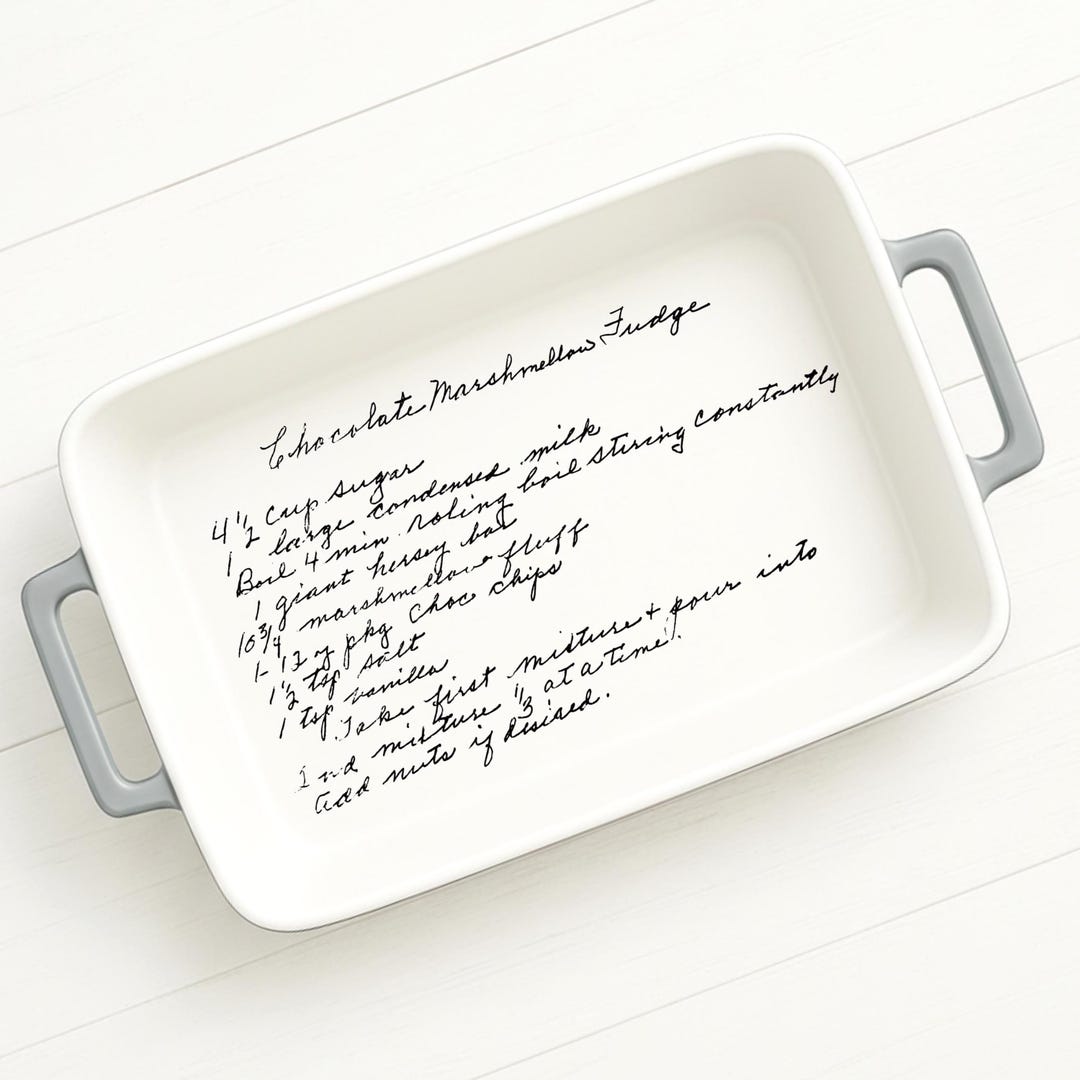 Chocolate Marshmellow Fudge
4 1/2 cup sugar
1 large condensed milk
Boil 4 min roling boil stiring constantly
1 giant hersey bar
10 3/4 marshmellow fluff
1- 12 oz pkg choc chips
1 1/2 tsp salt
1 tsp vanilla
Take first mixture + pour into
2nd mixture 1/3 at a time.
Add nuts if desired.